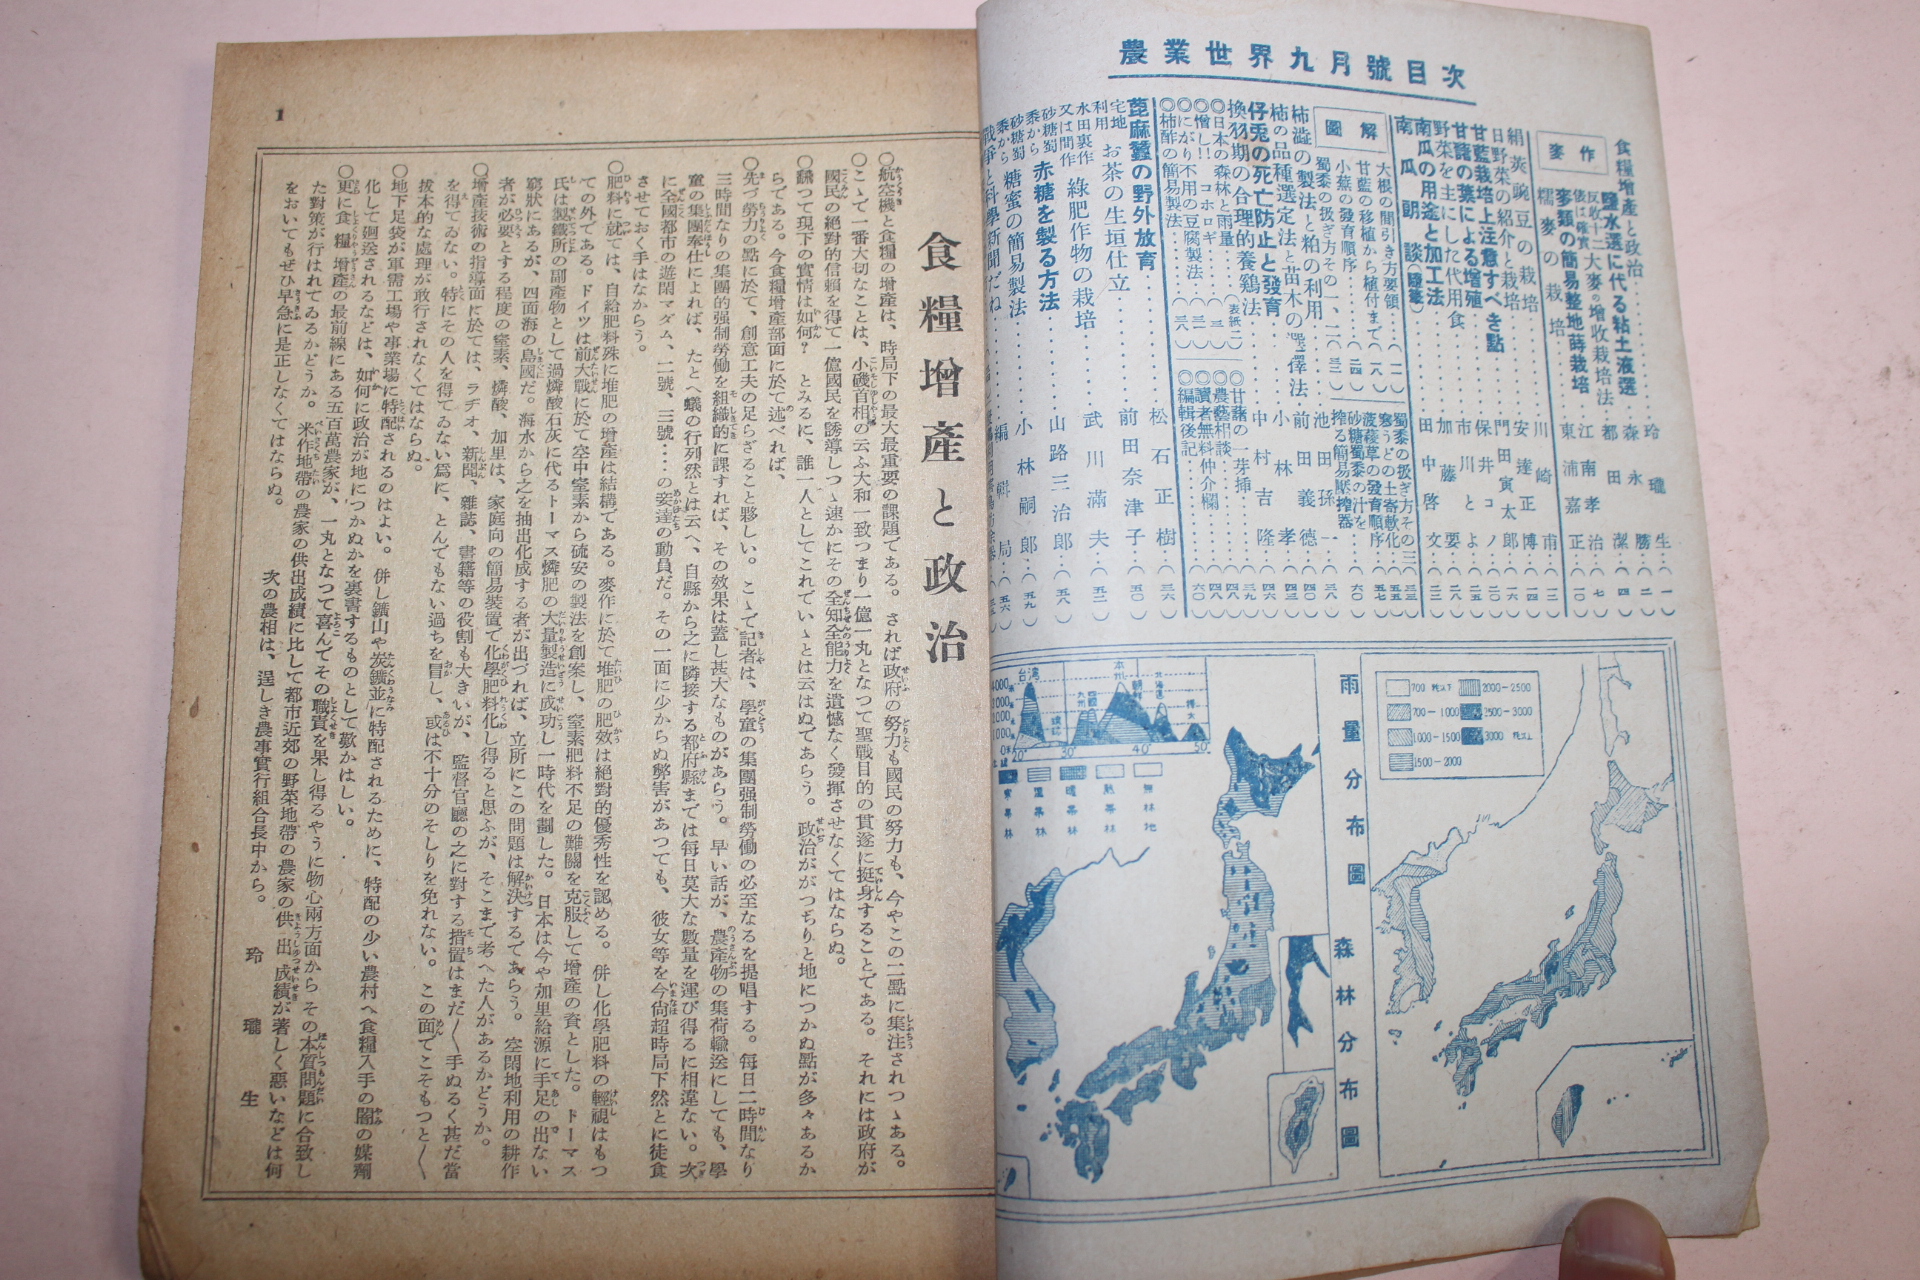 農業世界九月號目次
食糧增產と政治 玲瓏生 (一)
鹽水選に代る粘土液選 森永勝 (二)
麥作
反收十二俵は確實 大麥の增收栽培法 都田潔 (四)
麥類の簡易整地蒔栽培 江南孝治 (七)
糯麥の栽培 東浦嘉正 (一〇)
絹莢豌豆の栽培 川崎甫 (一二)
日野菜の紹介と栽培 安達正博 (一四)
甘藍栽培上注意すべき點 門田寅太郎
甘藷の葉による增殖 保井コノ (二〇)
野菜を主にした代用食 市川とよ
南瓜の用途と加工法 加藤要 (二八)
南瓜朗談(隨筆) 田中啓文
圖解
大根の間引き方要領
甘藍の移植から植付まで (一八)
小蕪の發育順序 (二四)
蜀黍の扱ぎ方その一、二
蜀黍の扱ぎ方その三
寒うどの土寄軟化 (五五)
菠薐草の發育順序 (五七)
砂糖蜀黍の汁を搾る簡易壓搾器 (六〇)
柿澁の製法と粕の利用 池田孫一 (三八)
柿の品種選定法と苗木の選擇法 前田義德 (四〇)
仔兎の死亡防止と發育 小林孝 (四三)
換羽期の合理的養鷄法 中村吉隆 (四六)
◎日本の森林と雨量 (表紙二)
◎憎し!!コホロギ
◎にがり不用の豆腐製法
◎柿酢の簡易製法 (三八)
◎甘藷の一芽挿 (三九)
◎農藝相談 (四八)
◎讀者無料仲介欄
◎編輯後記 (六〇)
蓖麻蠶の野外放育 松石正樹
宅地利用 お茶の生垣仕立 前田奈津子 (五〇)
水田裏作又は間作 綠肥作物の栽培 武川滿夫 (五二)
砂糖蜀黍から 赤糖を製る方法 山路三治郎 (五八)
砂糖蜀黍から 糖蜜の簡易製法 小林嗣郎 (五九)
戰爭と科學新聞だね 編輯局 (五六)
雨量分布圖
700 粍以下
700-1000
1000-1500
1500-2000
2000-2500
2500-3000
3000 粍以上
森林分布圖
台湾
4000
3000
2000
1000
0米
20° 30° 40° 50°
寒帶林
溫帶林
暖帶林
熱帶林
無林地
1
食糧增產と政治
○航空機と食糧の增產は、時局下の最大最重要の課題である。されば政府の努力も國民の努力も、今やこの二點に集注されつゝある。
○こゝで一番大切なことは、小磯首相の云ふ大和一致つまり一億一丸となつて聖戰目的の貫遂に挺身することである。それには政府が
國民の絕對的信賴を得て一億國民を誘導しつゝ速かにその全知全能力を遺憾なく發揮させなくてはならぬ。
○飜つて現下の實情は如何?とみるに、誰一人としてこれでいゝとは云はぬであらう。政治ががつちりと地につかぬ點が多々あるか
らである。今食糧增產部面に於て述べれば、
○先づ勞力の點に於て、創意工夫の足らざること夥しい。こゝで記者は、學童の集團强制勞働の必至なるを提唱する。每日二時間なり
三時間なりの集團的强制勞働を組織的に課すれば、その效果は蓋し甚大なものがあらう。早い話が、農產物の集荷輸送にしても、學
童の集團奉仕によれば、たとへ蟻の行列然とは云へ、自縣から之に隣接する都府縣までは每日莫大な數量を運び得るに相違ない。次
に全國都市の遊閑マダム、二號、三號……の妾達の動員だ。その一面に少からぬ弊害があつても、彼女等を今尙超時局下然とに徒食
させておく手はなからう。
○肥料に就ては、自給肥料殊に堆肥の增產は結構である。麥作に於て堆肥の肥效は絕對的優秀性を認める。併し化學肥料の輕視はもつ
ての外である。ドイツは前大戰に於て空中窒素から硫安の製法を創案し、窒素肥料不足の難關を克服して增產の資とした。トーマス
氏は製鐵所の副產物として過燐酸石灰に代るトーマス燐肥の大量製造に成功し一時代を劃した。日本は今や加里給源に手足の出ない
窮狀にあるが、四面海の島國だ。海水から之を抽出化成する者が出づれば、立所にこの問題は解決するであらう。空閑地利用の耕作
者が必要とする程度の窒素、燐酸、加里は、家庭向の簡易裝置で化學肥料化し得ると思ふが、そこまで考へた人があるかどうか。
○增產技術の指導面に於ては、ラヂオ、新聞、雜誌、書籍等の役割も大きいが、監督官廳の之に對する措置はまだ〳〵手ぬるく甚だ當
を得てゐない。特にその人を得てゐない爲に、とんでもない過ちを冒し、或は不十分のそしりを免れない。この面でこそもつと〳〵
拔本的な處理が敢行されなくてはならぬ。
○地下足袋が軍需工場や事業場に特配されるのはよい。併し鑛山や炭鑛並に特配されるために、特配の少い農村へ食糧入手の闇の媒劑
化して廻送されるなどは、如何に政治が地につかぬかを裏書するものとして歎かはしい。
○更に食糧增產の最前線にある五百萬農家が、一丸となつて喜んでその職責を果し得るやうに物心兩方面からその本質問題に合致し
た對策が行はれてゐるかどうか。米作地帶の農家の供出成績に比して都市近郊の野菜地帶の農家の供出成績が著しく惡いなどは何
をおいてもぜひ早急に是正しなくてはならぬ。
次の農相は、逞しき農事實行組合長中から。
玲瓏生